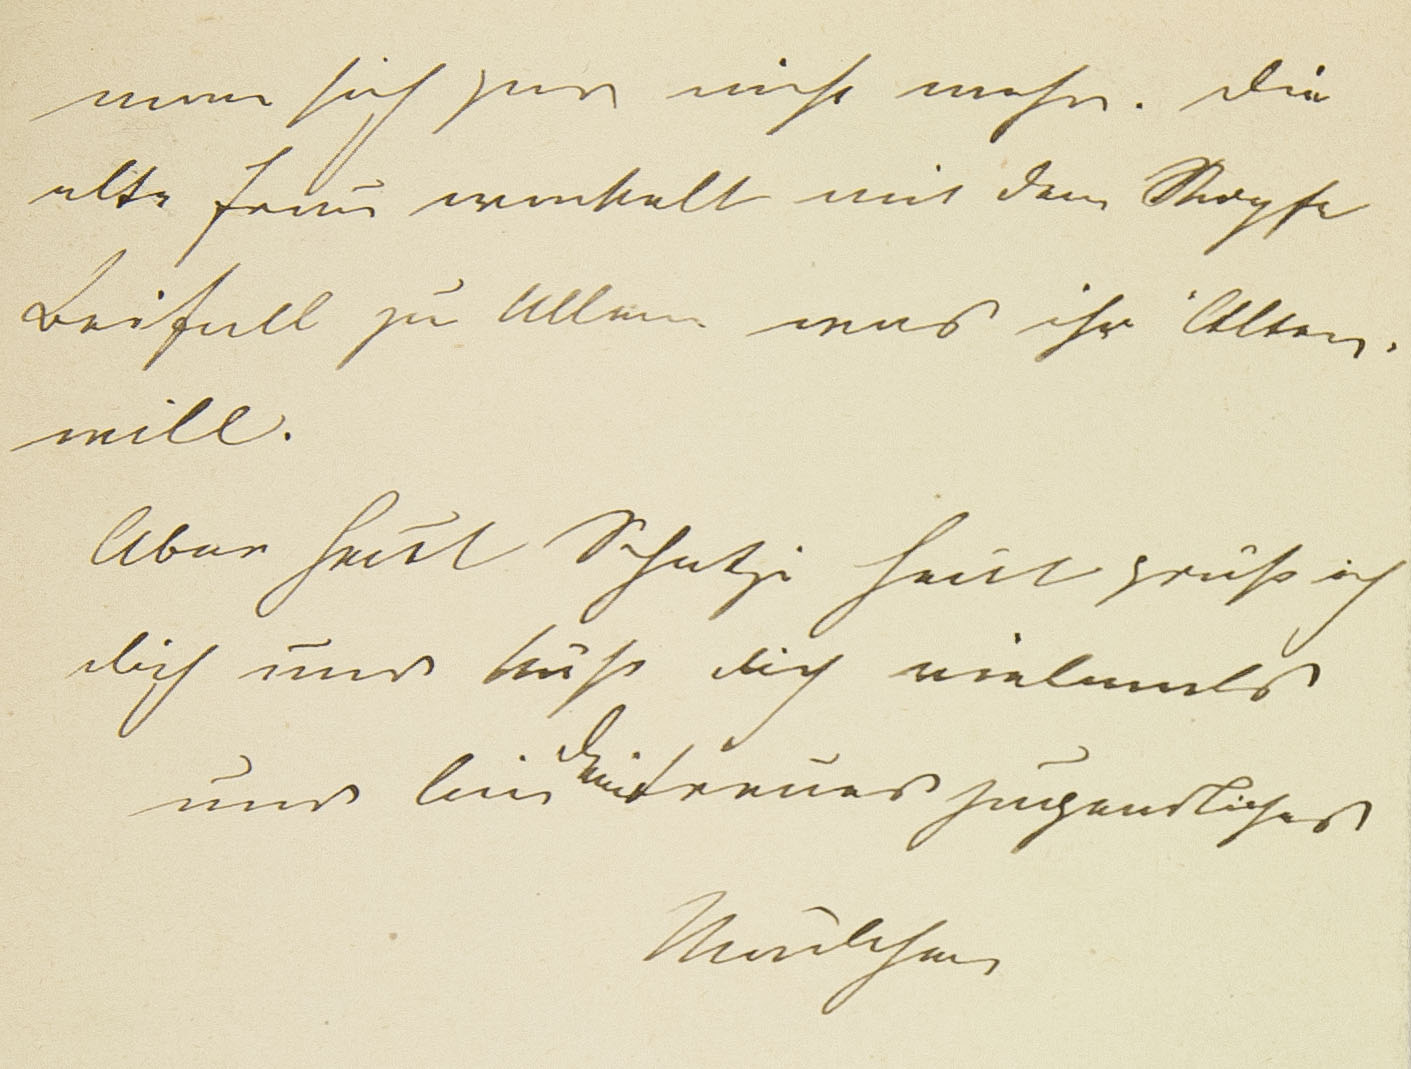 man sich gar nicht mehr. Die
alte Frau wackelt mit dem Kopfe
Beifall zu Allem was ihr Alter
will.
Aber heut Schatzi heut grüß ich
dich und küß dich vielmals
und bin Dein treues jugendliches
Maulchen